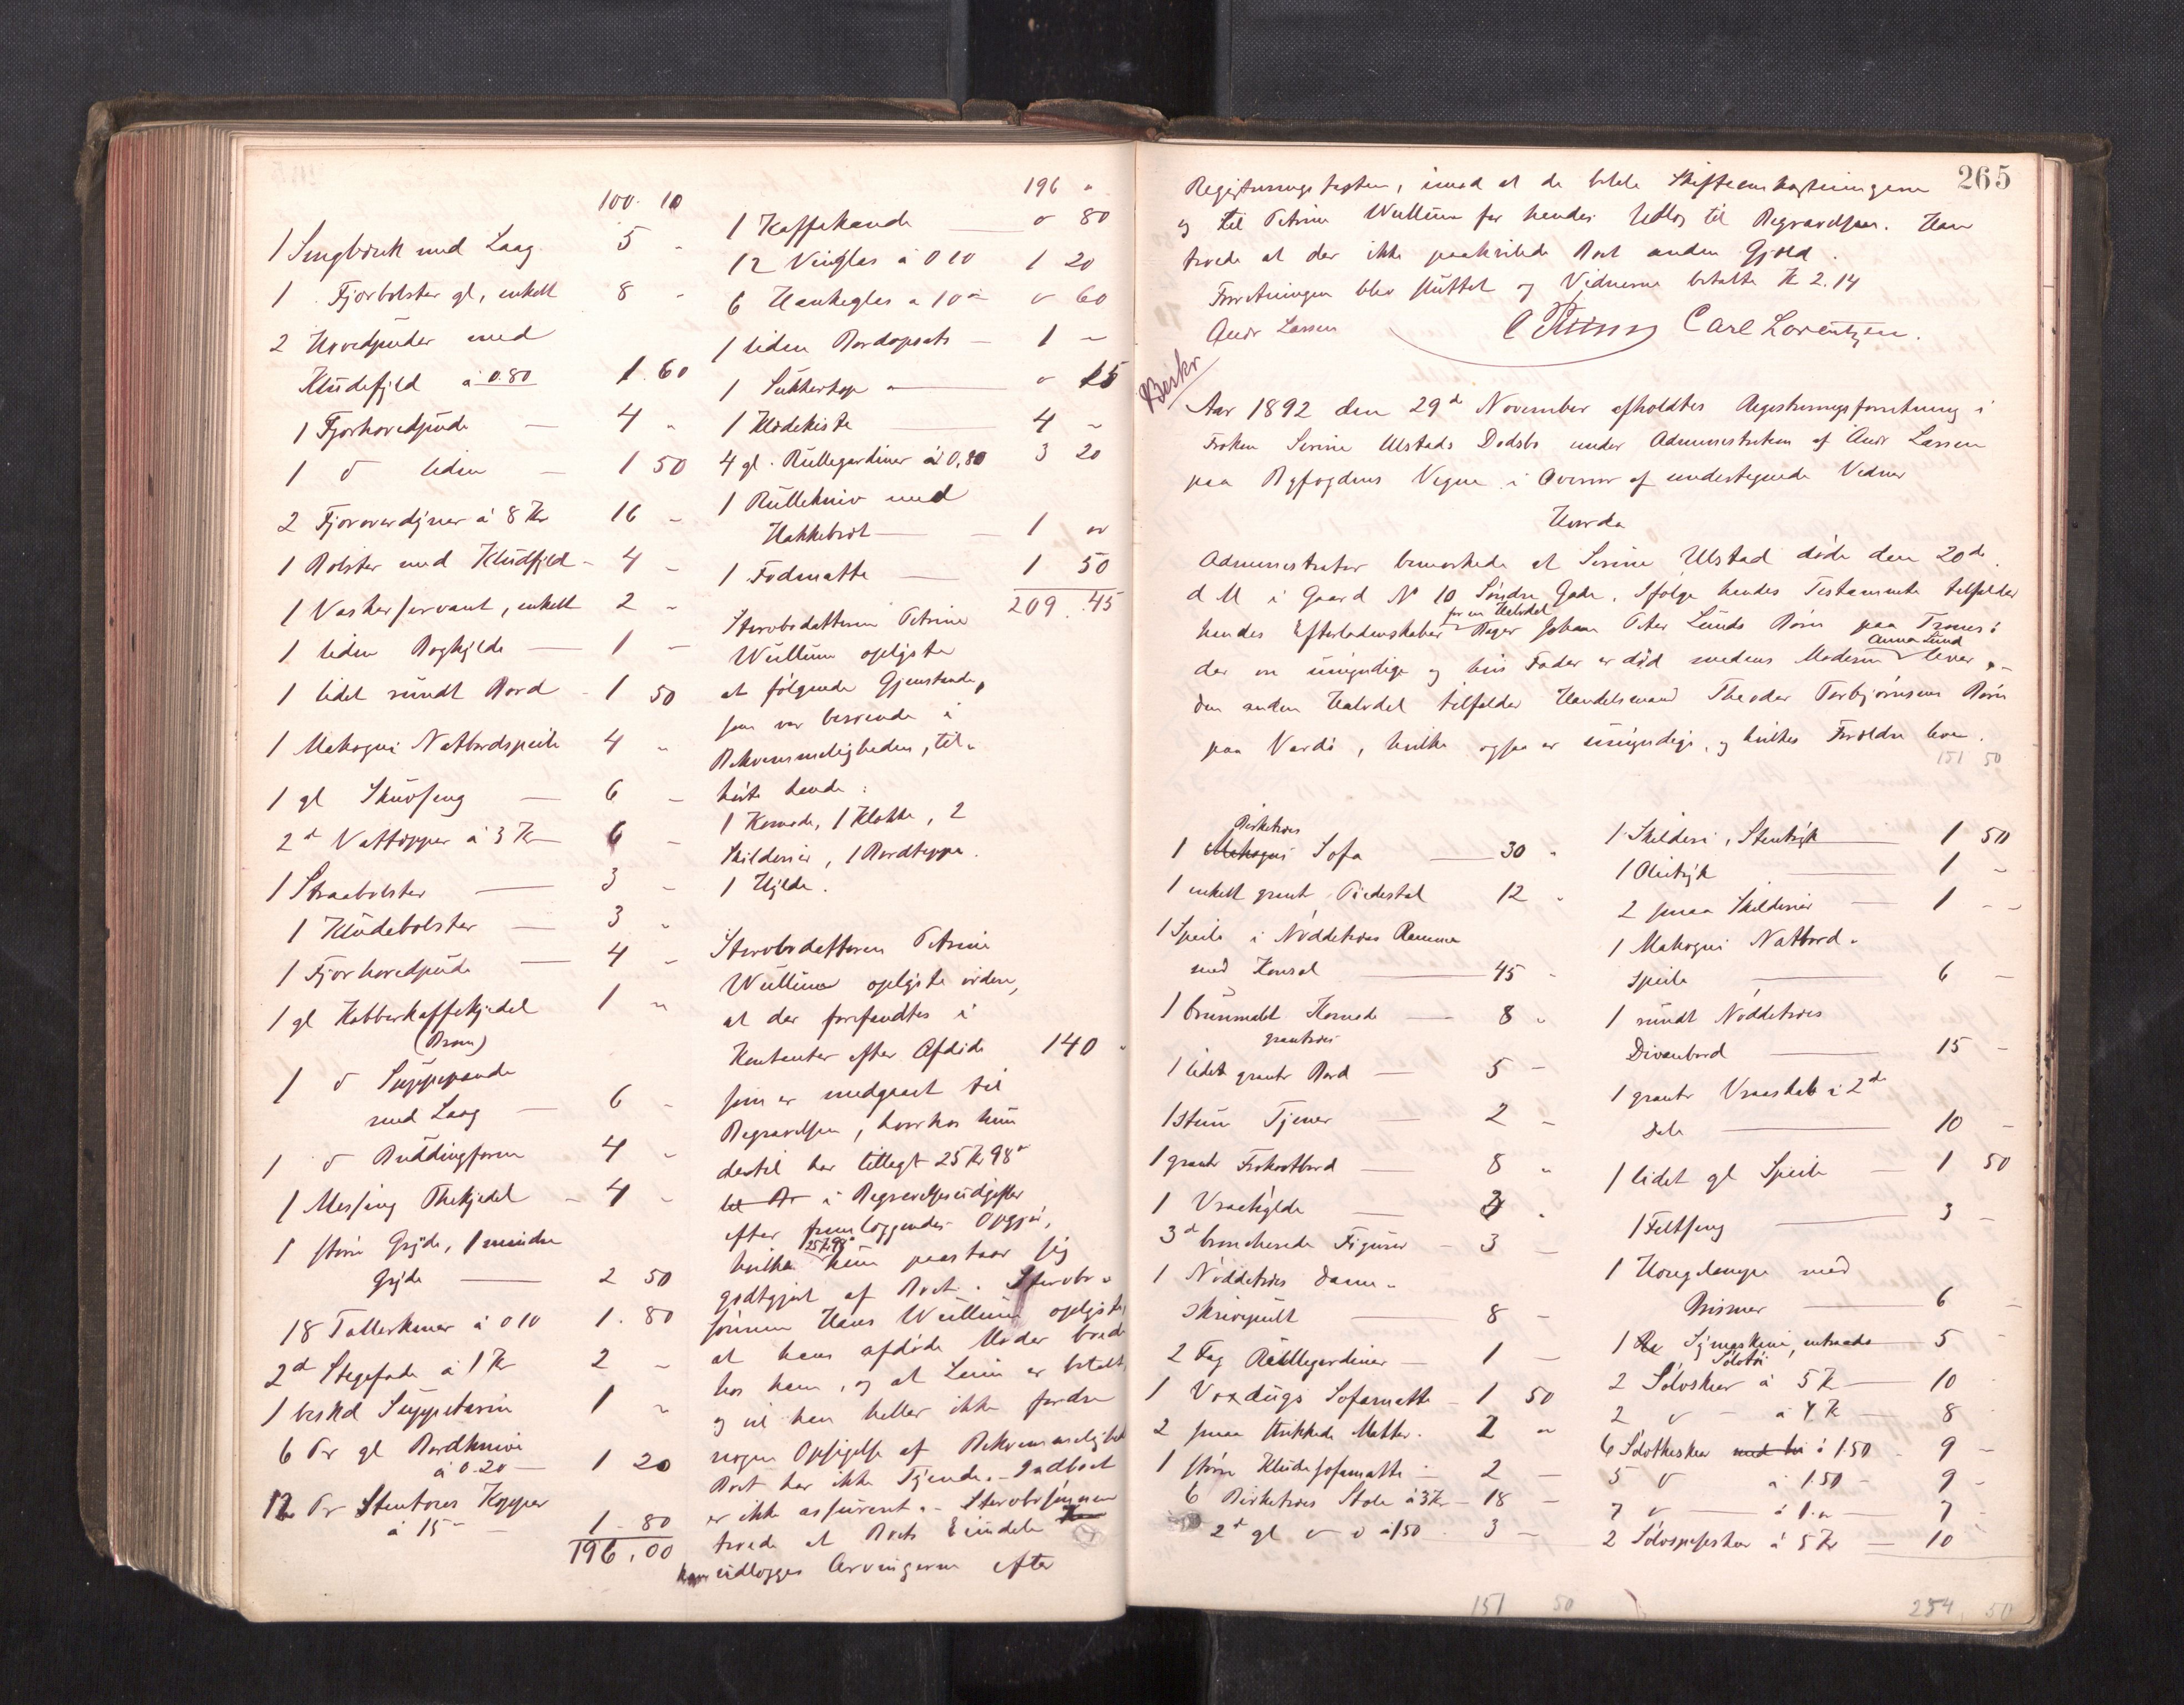 100. 10
1 Sengbænk med Laag 5 -
1 Fjørbolster gl, enkelt 8 -
2 Hovedpuder med
Kludefyld à 0.80 1.60
1 Fjørhovedpude — 4 "
1 d liden — 1 50
2 Fjøroverdyner à 8 Kr 16 -
1 Bolster med Kludfyld - 4 -
1 Vaskeservant, enkelt 2 -
1 liden Boghylde — 1 -
1 lidet rundt Bord - 1 50
1 Mahogni Natbordspeile 4 "
1 gl Skuvseng — 6 -
2 d Vattæpper à 3 Kr 6 -
1 Straabolster — 3 -
1 Kludebolster — 3 -
1 Fjørhovedpude — 4 -
1 gl Kobberkaffekjedel 1 "
1 d Suppepande
med Laag — 6 -
1 d Puddingform 4 -
1 Messing Thekjedel - 4 -
1 større Gryde, 1 mindre
Gryde — 2 50
18 Tallerkener à 010 1.80
2 d Stegefade à 1 Kr 2 -
1 besk d Suppeterrin 1 -
6 Pr gl Bordknive
à 0.20 — 1 20
12 Pr Stentøies Kopper
à 15 - 1 - 80
196,00
196 "
1 Kaffekande — " 80
12 Vinglas à 0 10 1 20
6 Hankeglas a 10 " 60
1 liden Bordopsats — 1 -
1 Sukkerkop — " 15
1 Klædekiste 4 -
4 gl. Rullegardiner à 0,80 3 20
1 Rullekniv med
Hakkebræt — 1 "
1 Fodmatte — 1 50
209.45
Stervbodatteren Petrine
Wullum oplyste
at følgende Gjenstande,
som var beroende i
Bekvemmeligheden, til-
hørte hende:
1 Komode, 1 Klokke, 2
Skilderier, 1 Bordteppe.
1 Hylde.
Stervbodatteren Petrine
Wullum oplyste videre,
at der forefandtes i
Kontanter efter Afdøde 140 "
som er medgaaet til
Begravelsen, hvorhos hun
dertil har tillagt 25 Kr 98
i Begravelsesudgifter
efter fremlæggendes Opgjør,
25 Kr 98
hvilke hun paastaar sig
godtgjort af Boet. Stervbo-
sønnen Hans Wullum oplyste
at hans afdøde Moder boede
hos ham, og at Leien er betalt,
og vil han heller ikke fordre
nogen Opsigelse af Bekvemmelighed
Boet har ikke Tjenere. - Indboet
er ikke assureret. - Stervbosønnen
troede at Boets Eiendele
kan udlægges Arvingerne efter
265
Registreringstaxten, imod at de betale Skifteomkostningerne
og til Petrine Wullum for hendes Udlæg til Begravelsen. Han
troede at der ikke paahvilede Boet anden Gjæld.
Forretningen blev sluttet og Vidnerne betalte Kr 2.14
Andr Lassen Carl Lorentzen.
Beskr
Aar 1892 den 29d November afholdtes Registreringsforretning i
Frøken Serine Ulstads Dødsbo under Administration af Andr Lassen
paa Byfogdens Vegne i Overvær af undertegnede Vidner
Hvorda
Administrator bemærkede at Serine Ulstad døde den 20de
d M i Gaard No 10 Søndre Gade. Ifølge hendes Testamente tilfalder
for en Halvdel
hendes Efterladenskaber Bager Johan Peter Lunds Børn paa Tromsø
Anna Lund
der er umyndige og hvis Fader er død medens Moderen lever, -
den anden Halvdel tilfalder Handelsmand Theodor Torbjørnsens Børn
paa Vardø, hvilke ogsaa er umyndige, og hvilkes Forældre lever.
151 50
Birketræes
1 Mahogni Sofa — 30 "
1 enkelt grant Piedestal 12 "
1 Speile i Nøddetræes Ramme
med Konsol — 45 -
1 brunmalt Komode — 8 "
grantræes
1 lidet grantr Bord — 5 -
1 Stum Tjener — 2 -
1 grantr Frokostbord — 8 "
1 Vraahylde — 3 "
3 d broncherede Figurer - 3 —
1 Nøddetræes Dame-
skrivepult — 8 -
2 Fag Rullegardiner — 1 —
1 Voxdugs Sofamatte - 1 50
2 smaa strikkede Matter. 2 "
1 større Kludesofamatte - 2 —
6 Birketræes Stole à 3 Kr - 18 —
2 d gl " " à 150 . 3 —
151 50
1 Skilderi, Stentryk — 1 50
1 Olietryk — 1 -
2 smaa Skilderier — 1 -
1 Mahogni Natbord-
speile — 6 -
1 rundt Nøddetræes
Divanbord — 15 -
1 grantr Vraaskab i 2 de
Dele — 10 -
1 lidet gl Speile — 1 50
1 Feltseng — 3 -
1 Hængelampe med
Prismer — 6 -
1 Symaskine, 5 -
Sølvtøi
2 Sølvskeer à 5 Kr — 10 -
2 " - à 4 Kr — 8 -
6 Sølvtheskeer à 1.50 - 9 -
5 " à 150 - 9 -
7 " — à 1." — 7 -
2 Sølvspiseskeer à 5 Kr — 10
254, 50